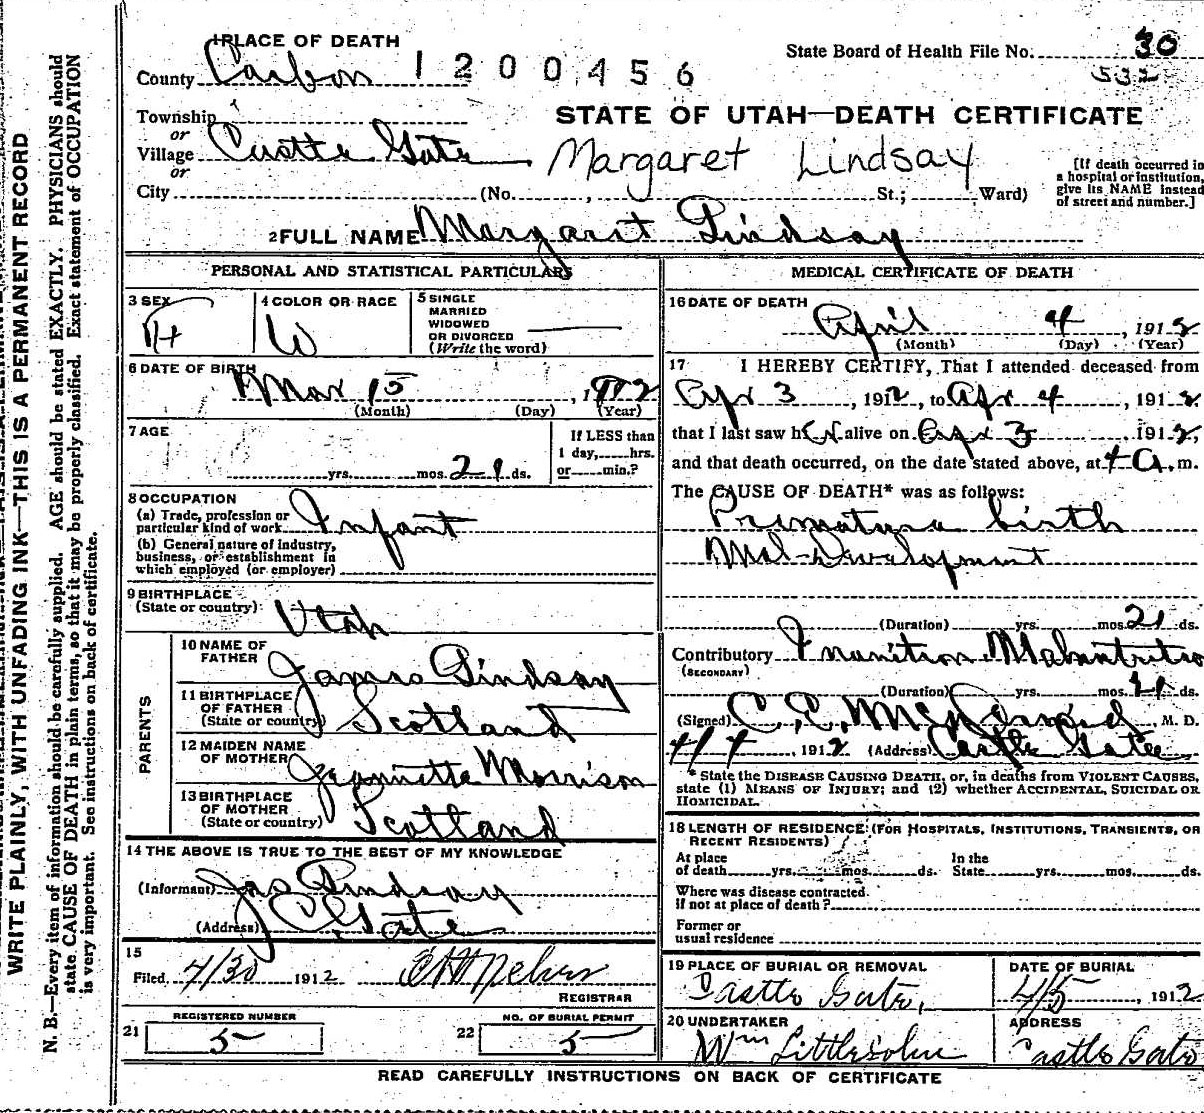 WRITE PLAINLY, WITH UNFADING INK—THIS IS A PERMANENT RECORD
N. B.—Every item of information should be carefully supplied. AGE should be stated EXACTLY. PHYSICIANS should
state CAUSE OF DEATH in plain terms, so that it may be properly classified. Exact statement of OCCUPATION
is very important. See instructions on back of certificate.
1 PLACE OF DEATH
County Carbon 1200456
State Board of Health File No. 30
532
STATE OF UTAH—DEATH CERTIFICATE
Township
or
Village Castle Gate
or
Margaret Lindsay
City (No. , St.; Ward)
[If death occurred in
a hospital or institution,
give its NAME instead
of street and number.]
2 FULL NAME Margaret Lindsay
PERSONAL AND STATISTICAL PARTICULARS
3 SEX
4 COLOR OR RACE W
5 SINGLE
MARRIED
WIDOWED
OR DIVORCED
(Write the word)
6 DATE OF BIRTH
Mar 15, 1912
(Month) (Day) (Year)
7 AGE
yrs. mos. 21 ds.
If LESS than
1 day, hrs.
or min.?
8 OCCUPATION
(a) Trade, profession or
particular kind of work Infant
(b) General nature of industry,
business, or establishment in
which employed (or employer)
9 BIRTHPLACE
(State or country) Utah
PARENTS
10 NAME OF
FATHER James Lindsay
11 BIRTHPLACE
OF FATHER
(State or country) Scotland
12 MAIDEN NAME
OF MOTHER Jeannette Morrison
13 BIRTHPLACE
OF MOTHER
(State or country) Scotland
14 THE ABOVE IS TRUE TO THE BEST OF MY KNOWLEDGE
(Informant) Jas Lindsay
(Address) C Gate
15
Filed 4/30 1912
REGISTRAR
REGISTERED NUMBER
21 5
NO. OF BURIAL PERMIT
22 5
MEDICAL CERTIFICATE OF DEATH
16 DATE OF DEATH
April 4, 1912
(Month) (Day) (Year)
17 I HEREBY CERTIFY, That I attended deceased from
Apr 3, 1912, to Apr 4, 1912
that I last saw her alive on Apr 3, 1912
and that death occurred, on the date stated above, at 4 A. m.
The CAUSE OF DEATH* was as follows:
Premature birth
Mal-Development
(Duration) yrs. mos. 21 ds.
Contributory Inanition Malnutrition
(SECONDARY)
(Duration) yrs. mos. 21 ds.
(Signed) C. E. McDermid, M. D.
4/4, 1912 (Address) Castle Gate
* State the DISEASE CAUSING DEATH, or, in deaths from VIOLENT CAUSES,
state (1) MEANS OF INJURY; and (2) whether ACCIDENTAL, SUICIDAL OR
HOMICIDAL.
18 LENGTH OF RESIDENCE (FOR HOSPITALS, INSTITUTIONS, TRANSIENTS, OR
RECENT RESIDENTS)
At place
of death yrs. mos. ds.
In the
State yrs. mos. ds.
Where was disease contracted
if not at place of death?
Former or
usual residence
19 PLACE OF BURIAL OR REMOVAL
Castle Gate,
DATE OF BURIAL
4/5, 1912
20 UNDERTAKER
Wm
ADDRESS
Castle Gate
READ CAREFULLY INSTRUCTIONS ON BACK OF CERTIFICATE